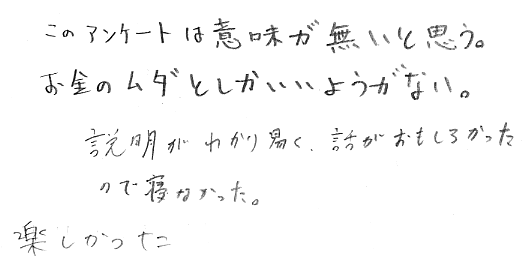 このアンケートは意味が無いと思う。
お金のムダとしかいいようがない。
説明がわかり易く、話がおもしろかった
ので寝なかった。
楽しかった